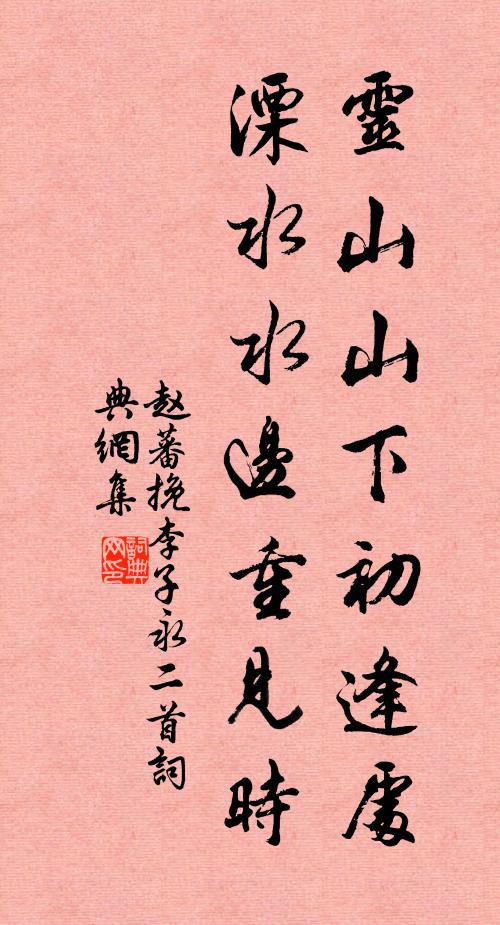 靈山山下初逢處
溧水水邊重見時
赵蕃挽李子永二首詞
典網集
詞典
网印